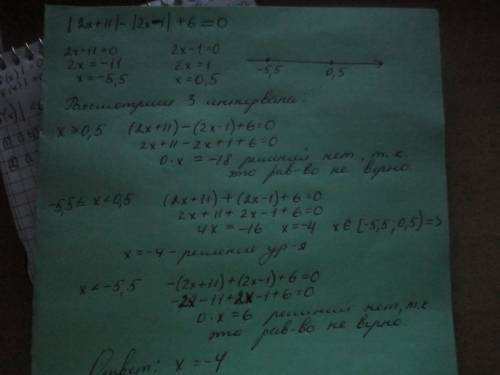 |2x+11|-|2x-1|+6=0
2x+11=0 2x-1=0
2x=-11 2x=1
x=-5,5 x=0,5
-5,5 0,5
Рассмотрим 3 интервала:
x≥0,5 (2x+11)-(2x-1)+6=0
2x+11-2x+1+6=0
0·x=-18 решений нет, т.к
это рав-во не верно.
-5,5≤x<0,5 (2x+11)+(2x-1)+6=0
2x+11+2x-1+6=0
4x=-16 x=-4 x∈[-5,5;0,5)=>
x=-4 - решение ур-я
x<-5,5 -(2x+11)+(2x-1)+6=0
-2x-11+2x-1+6=0
0·x=6 решений нет, т.к
это рав-во не верно.
Ответ: x=-4